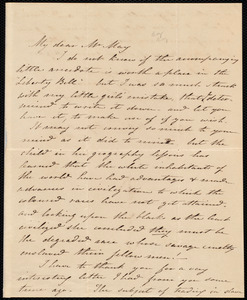 My dear Mr May
I do not know if the accompanying
little anecdote is worth a place in the
Liberty Bell: but I was so much struck
with my little girl's mistake, that I deter-
mined to write it down and let you
have it, to make use of if you wish.
It may not convey so much to your
mind as it did to mine but the
child in her geography lessons has
learned that the white inhabitants of
the world have had advantages & made
advances in civilization to which the
coloured races have not yet attained,
and looking upon the blacks as the least
civilized she concluded they must be
the degraded race whose savage cruelty
enslaved their fellow men!
I have to thank you for a very
interesting letter I had from you some
time ago. The subject of trading in slave